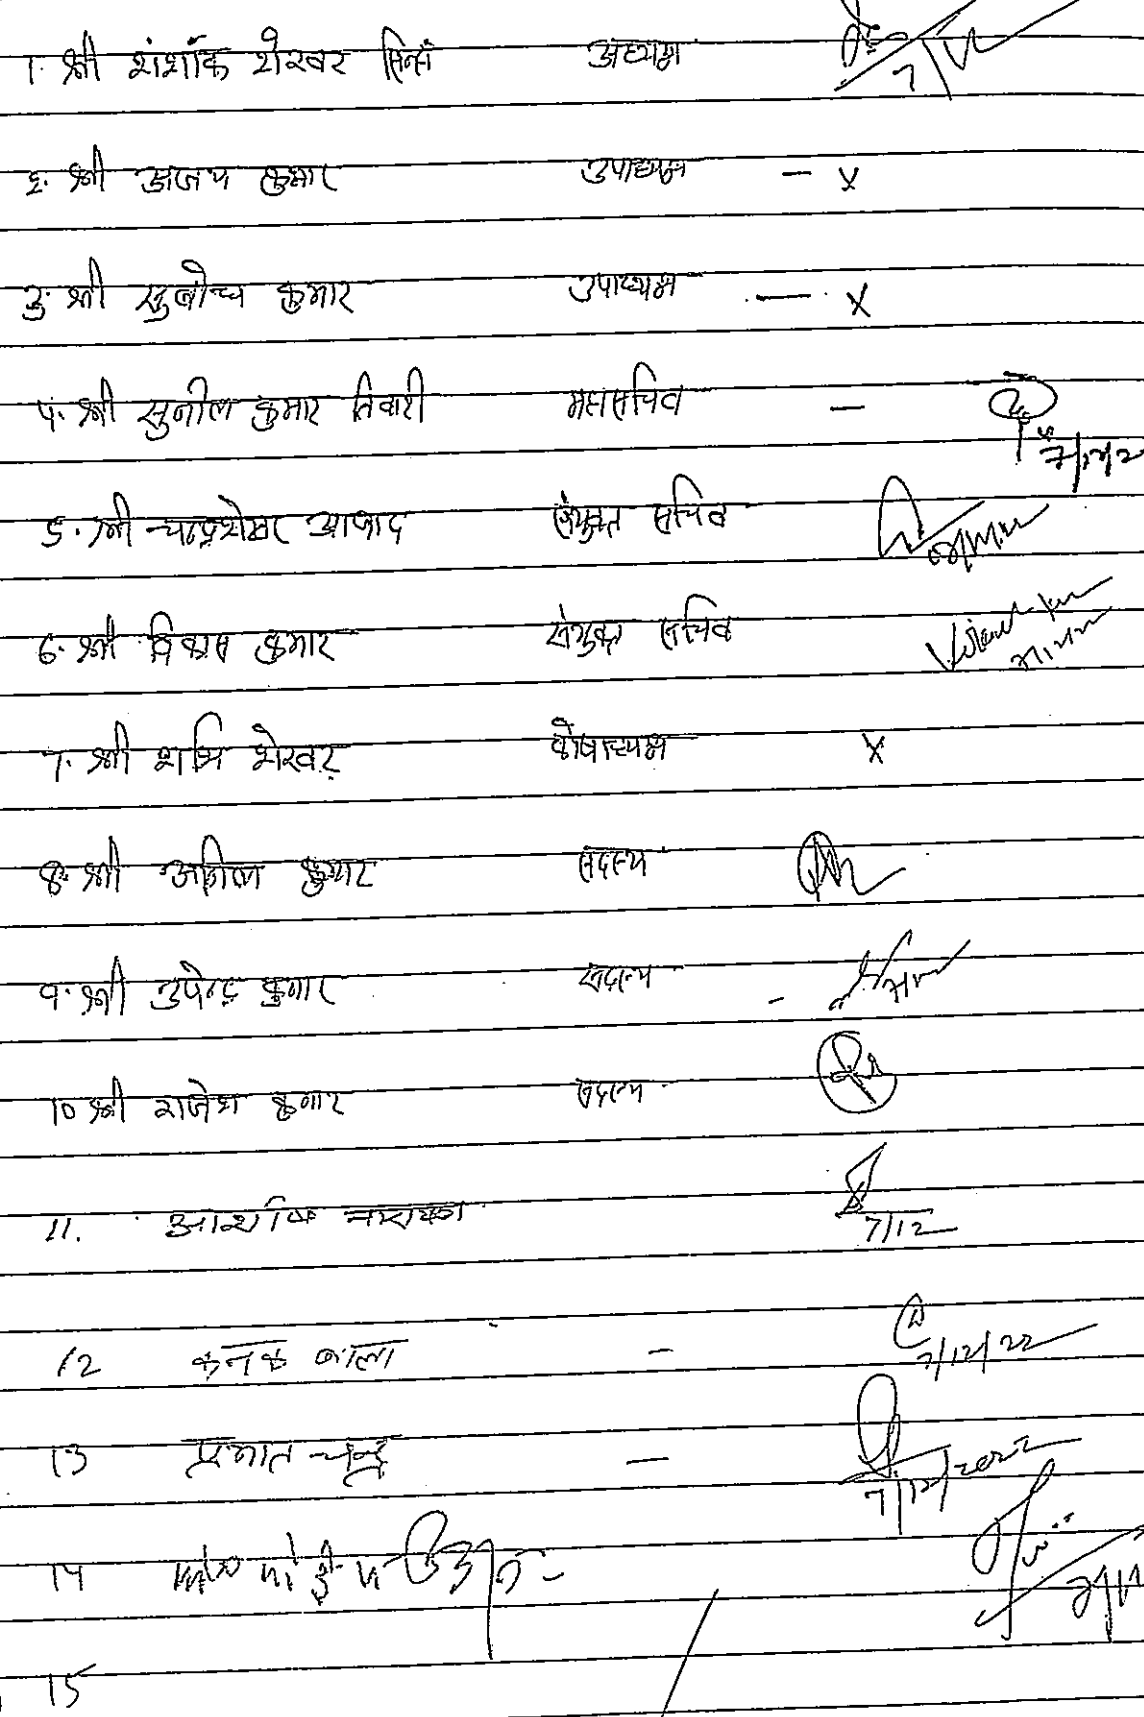 1. श्री शंशांक शेखर सिन्हा अध्यक्ष
2. श्री अजय कुमार उपाध्यक्ष - x
3. श्री सुबोध कुमार उपाध्यक्ष - x
४. श्री सुनील कुमार तिवारी महासचिव -
5. श्री चन्द्रशेखर आजाद संयुक्त सचिव
6. श्री विकास कुमार संयुक्त सचिव
7. श्री शशि शेखर कोषाध्यक्ष x
8. श्री अनिल कुमार सदस्य
9. श्री उपेन्द्र कुमार सदस्य -
10 श्री राजेश कुमार सदस्य
11. आशीष नारायण 7/12
12 कनक बाला - 7/12/22
13 प्रभात चन्द्र - 7/12/2022
14
15